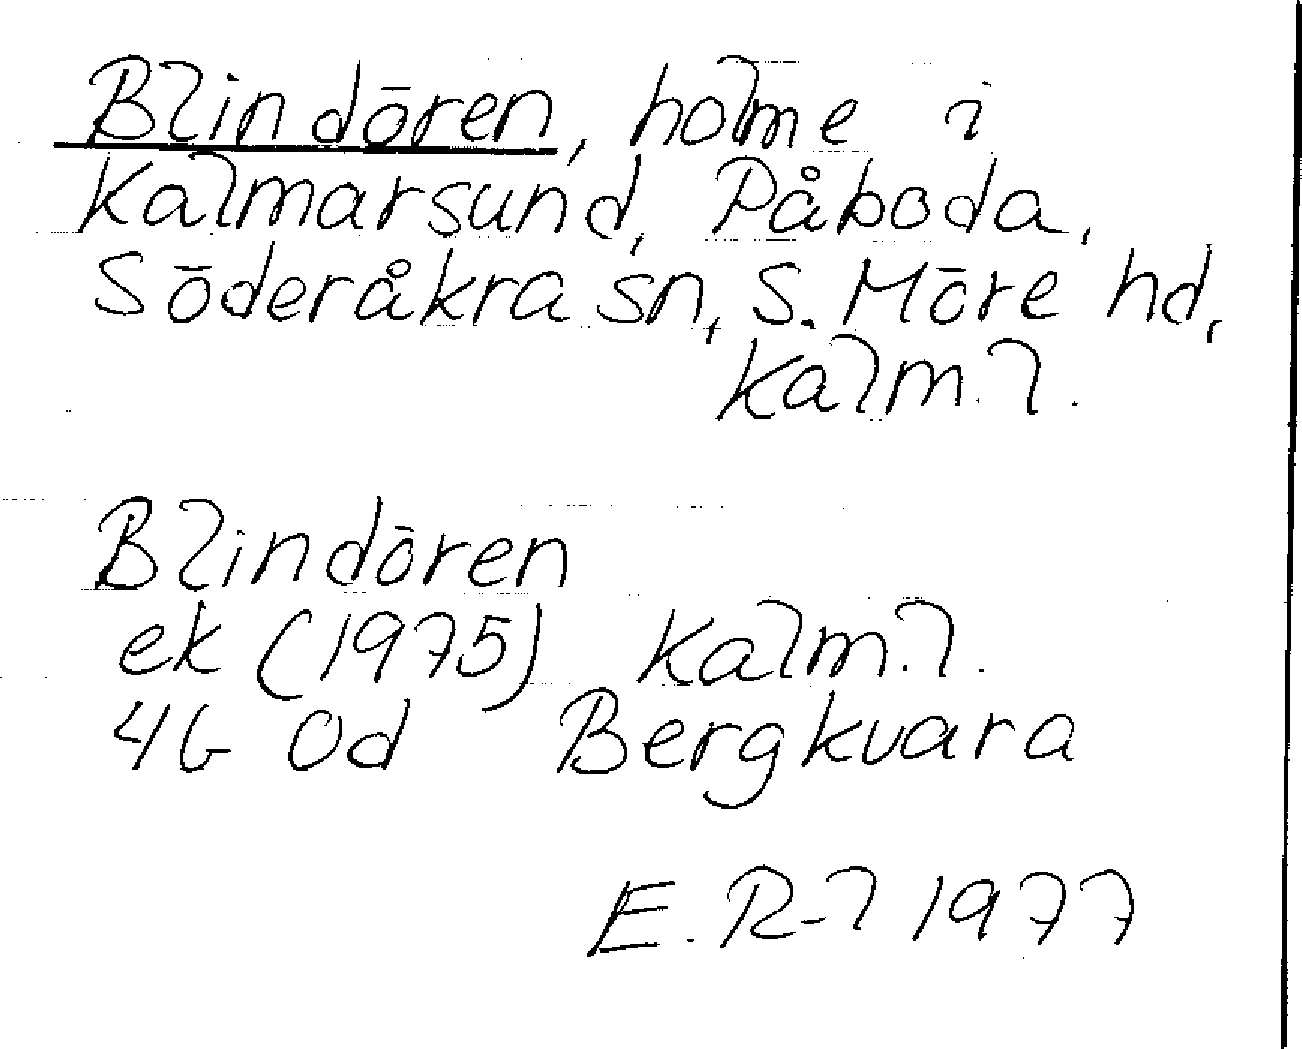 Blindören, holme i
Kalmarsund, Påboda,
Söderåkra sn, S. Möre hd,
Kalm. l.
Blindören
ek (1975) Kalm. l.
4G 0d Bergkvara
E. R-l 1977